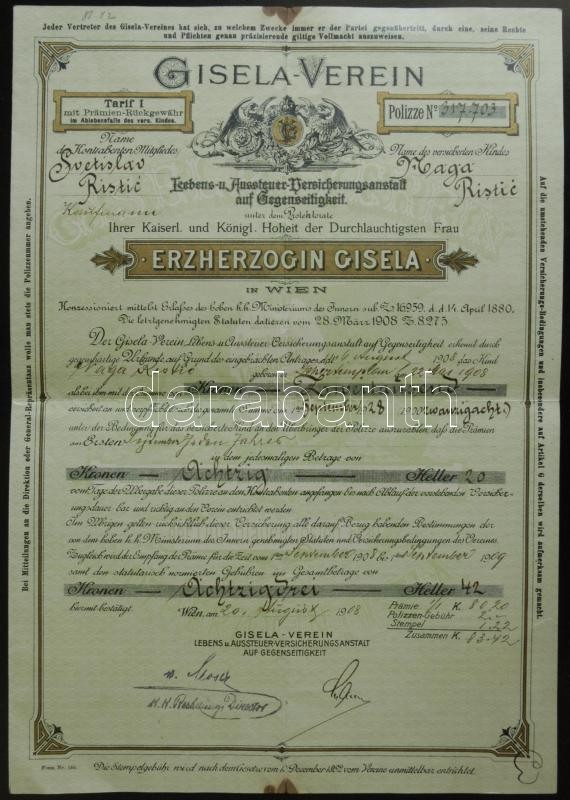 Jeder Vertreter des Gisela-Vereines hat sich, zu welchem Zwecke immer er der Partei gegenübertritt, durch eine, seine Rechte
und Pflichten genau präzisierende giltige Vollmacht auszuweisen.
GISELA-VEREIN
Tarif I
mit Prämien-Rückgewähr
im Ablebensfalle des vers. Kindes.
Polizze No 317,703
Name
des Kontrahenten, Mitgliedes
Svetislav
Ristić
Kaufmann
Name des versicherten Kindes
Naga
Ristić
Lebens- u. Aussteuer-Versicherungsanstalt
auf Gegenseitigkeit.
unter dem Protektorate
Ihrer Kaiserl. und Königl. Hoheit der Durchlauchtigsten Frau
ERZHERZOGIN GISELA
IN WIEN
Konzessioniert mittelst Erlaßes des hohen k.k. Ministeriums des Innern sub Z. 16959. d. d. 14. April 1880.
Die letztgenehmigten Statuten datieren vom 28. März 1908 Z. 8275
Der Gisela-Verein, Lebens u. Aussteuer-Versicherungsanstalt auf Gegenseitigkeit erkennt durch
gegenwärtige Urkunde auf Grund des eingebrachten Antrages ddt 6 August 1908 das Kind
Naga Ristić geboren 1908
Kronen
September 1928 zwanzigacht
unter der Bedingung für das versicherte Kind an den Überbringer der Polizze auszuzahlen, daß die Prämien
am Ersten September Jeden Jahres
in dem jedesmaligen Betrage von
Kronen — Achtzig — Heller 20
vom Tage der Übergabe dieser Polizze an den Kontrahenten angefangen bis nach Ablauf der vorstehenden Versicher-
ungsdauer bar und richtig an den Verein entrichtet werden
Im Übrigen gelten rücksichtlich dieser Versicherung alle darauf Bezug habenden Bestimmungen der
von dem hohen k.k. Ministerium des Innern genehmigten Statuten und Versicherungsbedingungen des Vereines.
Zugleich wird der Empfang der Prämie für die Zeit vom 1ten September 1908 bis 1ten September 1909
samt den statutarisch normierten Gebühren im Gesamtbetrage von
Kronen — Achtzigdrei — Heller 42
hiermit bestätigt. Wien, am 20. August 1908
Prämie 1/1 K. 80.20
Polizzen-Gebühr 2.-
Stempel 1.22
Zusammen K. 83.42
GISELA-VEREIN
LEBENS u AUSSTEUER-VERSICHERUNGSANSTALT
AUF GEGENSEITIGKEIT
Director
Form. Nr.
Die Stempelgebühr wird nach dem Gesetze vom Dezember vom Vereine unmittelbar entrichtet.
Bei Mitteilungen an die Direktion oder General-Repräsentanz wolle man stets die Polizzenummer angeben.
Auf die umstehenden Versicherungs-Bedingungen und insbesondere auf Artikel derselben wird aufmerksam gemacht.
darabanth